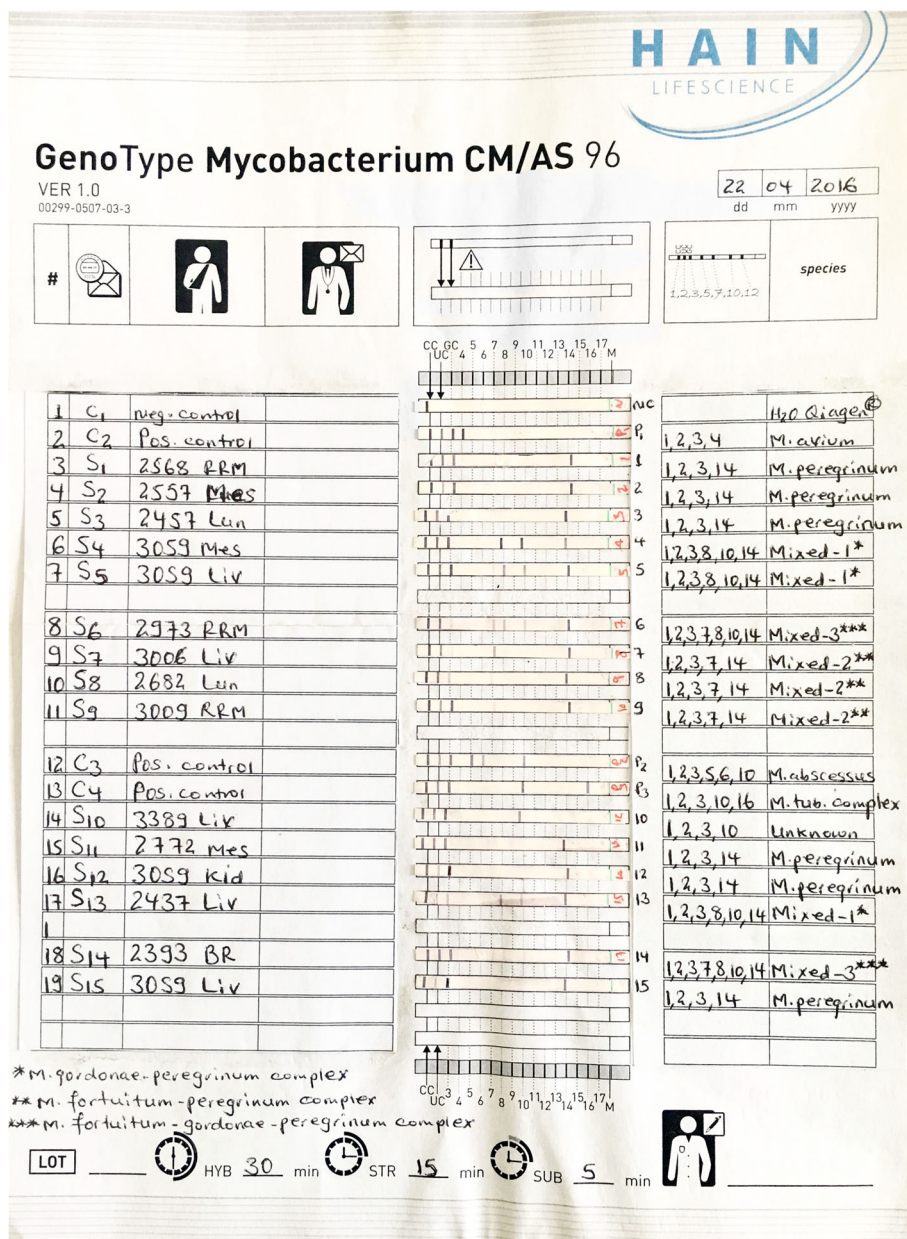 HAIN
LIFESCIENCE
GenoType Mycobacterium CM/AS 96
VER 1.0
00299-0507-03-3
22 04 2016
dd mm yyyy
#
species
1,2,3,5,7,10,12
CC GC 5 7 9 11 13 15 17
UC 4 6 8 10 12 14 16 M
1 C1 Neg. control NC H2O Qiagen®
2 C2 Pos. control P1 1,2,3,4 M. avium
3 S1 2568 RRM 1 1,2,3,14 M. peregrinum
4 S2 2557 Mes 2 1,2,3,14 M. peregrinum
5 S3 2457 Lun 3 1,2,3,14 M. peregrinum
6 S4 3059 Mes 4 1,2,3,8,10,14 Mixed-1*
7 S5 3059 Liv 5 1,2,3,8,10,14 Mixed-1*
8 S6 2973 RRM 6 1,2,3,7,8,10,14 Mixed-3***
9 S7 3006 Liv 7 1,2,3,7,14 Mixed-2**
10 S8 2682 Lun 8 1,2,3,7,14 Mixed-2**
11 S9 3009 RRM 9 1,2,3,7,14 Mixed-2**
12 C3 Pos. control P2 1,2,3,5,6,10 M. abscessus
13 C4 Pos. control P3 1,2,3,10,16 M. tub. complex
14 S10 3389 Liv 10 1,2,3,10 Unknown
15 S11 2772 Mes 11 1,2,3,14 M. peregrinum
16 S12 3059 Kid 12 1,2,3,14 M. peregrinum
17 S13 2437 Liv 13 1,2,3,8,10,14 Mixed-1*
1
18 S14 2393 BR 14 1,2,3,7,8,10,14 Mixed-3***
19 S15 3059 Liv 15 1,2,3,14 M. peregrinum
CC 3 5 6 7 8 9 11 13 15 17 M
UC 4 10 12 14 16
*M. gordonae-peregrinum complex
**M. fortuitum-peregrinum complex
***M. fortuitum-gordonae-peregrinum complex
LOT HYB 30 min STR 15 min SUB 5 min